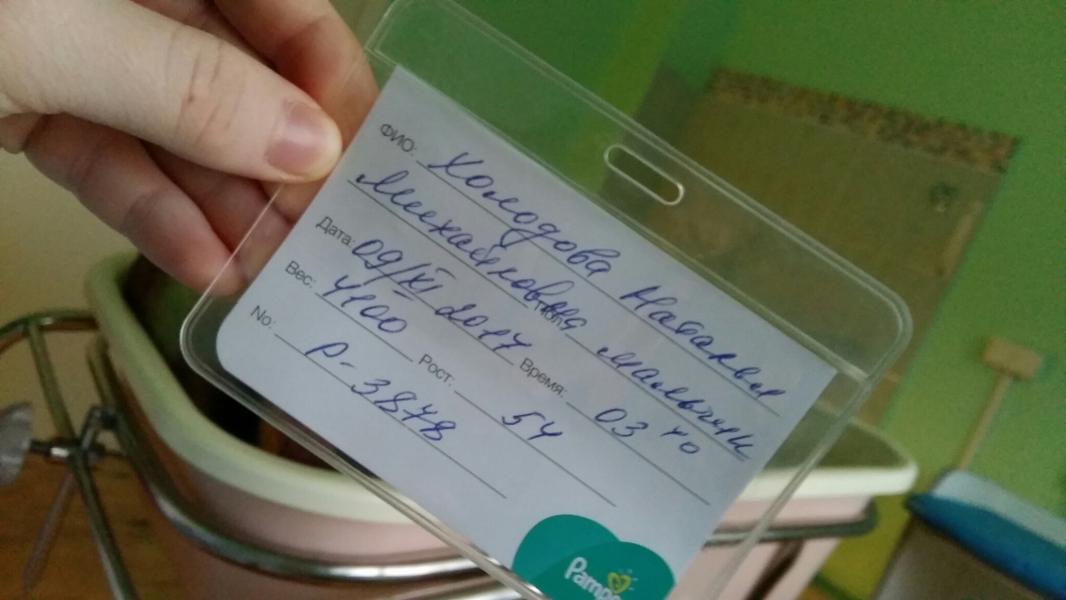 ФИО: Холодова Наталья
Михайловна Пол: мальчик
Дата: 09/XI 2017 Время: 03 40
Вес: 4100 Рост: 54
No: Р-3878
Pampe